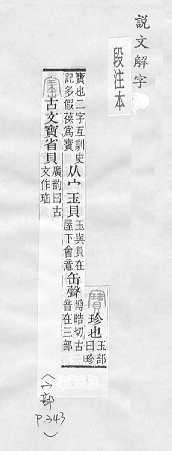 說文解字
段注本
珍也玉部曰珍
寶也二字互訓史記多假葆爲寶从宀玉貝玉與貝在屋下會意缶聲博晧切古音在三部
古文寶省貝廣韵曰古文作珤
(宀部 P.343)